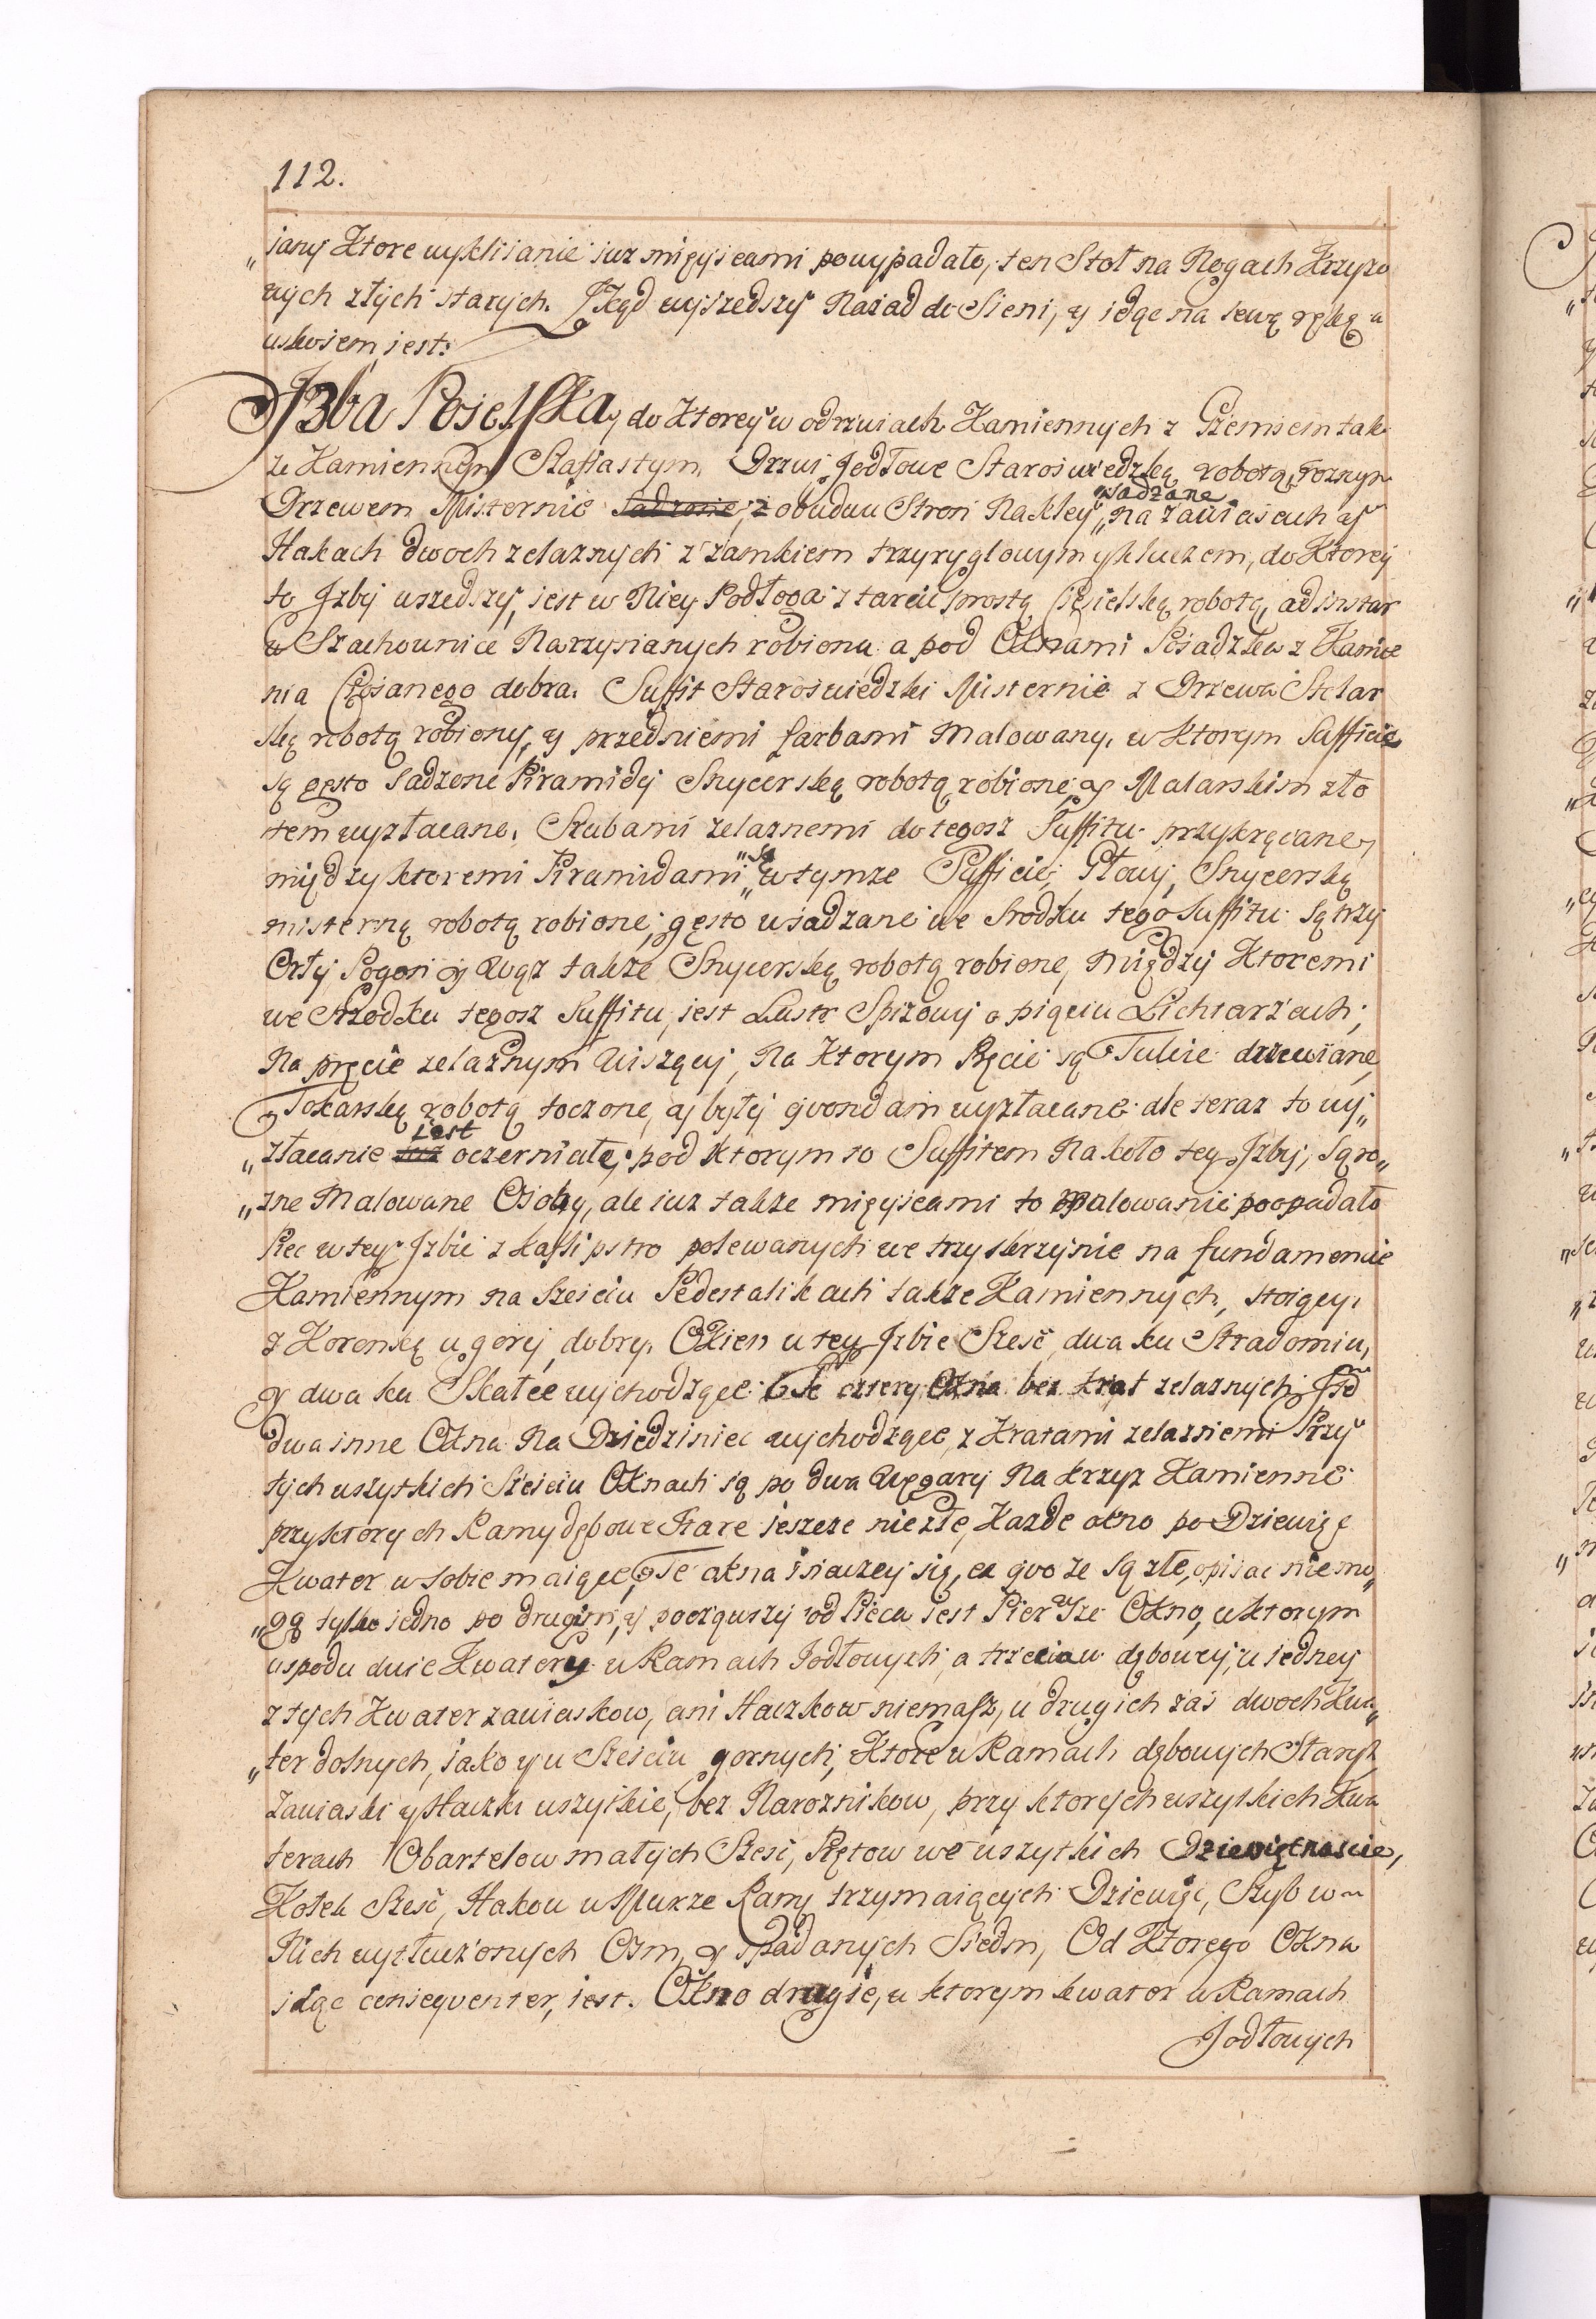 112.
„iany Ktore wyklijanie iuz mieyscami powypadało, ten Stoł na Nogach Krzyzo
wych złych starych. Zkąd wyszedszy Nazad do Sieni, y idąc na lewą rękę w
uskosiem iest.
Izba Poselska, do Ktorey w odrzwiach Kamiennych z Gzemsem tak
ze Kamiennym Szafiastym, Drzwi Jodłowe Staroswiedzką robotą, roznym
Drzewem Misternie sadzone, z obudwu Stron Na kley „wsadzane „na zawiasach y
Hakach dwoch zelaznych z zamkiem trzyryglowym y kluczem, do Ktorey
to Izby wszedszy, iest w Niey Podłoga z tarcic prostą Ciesielską robotą, ad instar
w Szachownice Narzynanych robiona a pod Oknami Posadzka z Kamie
nia Ciosanego dobra. Suffit Staroswiedzki Misternie z Drzewa Stolar
ską robotą robiony, y przedniemi farbami Malowany, w ktorym Sufficie
są gęsto Sadzone Piramidy Snycerską robotą robione, y Malarskim zło
tem wyzłacane, Szubami zelaznemi do tegosz Suffitu przykręcane,
między ktoremi Piramidami „są „w tymze Sufficie, Głowy, Snycerską
misterną robotą robione, gęsto wsadzane we Srodku tego Suffitu są trzy
Orły, Pogon y Wąz takze Snycerską robotą robione, między Ktoremi
we Srzodku tegosz Suffitu, iest Lustr Spizowy o pięciu Lichtarzach,
Na pręcie zelaznym Wiszący, Na Ktorym Pręcie są Tuleie drzewiane,
Tokarską robotą toczone, y były qvondam wyzłacane ale teraz to wy„
„złacanie iuz iest oczerniałe, pod ktorym to Suffitem Na koło tey Izby, są ro„
„zne Malowane Osoby, ale iuz takze mieyscami to malowanie poopadało
Piec w tey Izbie z kafli pstro polewanych we trzy skrzynie na fundamencie
Kamiennym na Szesciu Pedestalikach takze Kamiennych, stoiący,
z Koronką u gory, dobry. Okien w tey Izbie Szesc, dwa ku Stradomiu,
y dwa ku Skałce wychodzące Te cztery Okna bez krat zelaznych,
dwa inne Okna Na Dziedziniec wychodzące, z Kratami zelaznemi Przy
tych wszytkich Szesciu Oknach są po dwa Węgary Na krzyz Kamienne
przy ktorych Ramy dębowe Stare ieszcze nie złe, Kazde okno po Dziewięc
Kwater w sobie maiące, Te okna inaczey się, ex quo ze są złe, opisac nie mo„
„gą tylko iedno po drugim, y począwszy od Pieca iest Pierwsze Okno, w ktorym
uspodu dwie Kwatery w Ramach Jodłowych, a trzecia w dębowey, u iedney
z tych Kwater zawiaskow, ani Haczkow niemasz, u drugich zas dwoch Kwa„
„ter dolnych, iako y u Szesciu gornych, Ktore w Ramach dębowych Starych
Zawiaski y Haczki wszytkie, bez Naroznikow, przy ktorych wszytkich Kwa
terach Obartelow małych Szesc, Prętow we wszytkich Dziewiętnascie,
Kołek Szesc, Hakow w Murze Ramy trzymaiących Dziewięc, Szyb w
Nich wytłuczonych Osm, y spadanych Siedm, Od Ktorego Okna
idąc conseqventer, iest. Okno drugie, w ktorym kwater w Ramach
Jodłowych